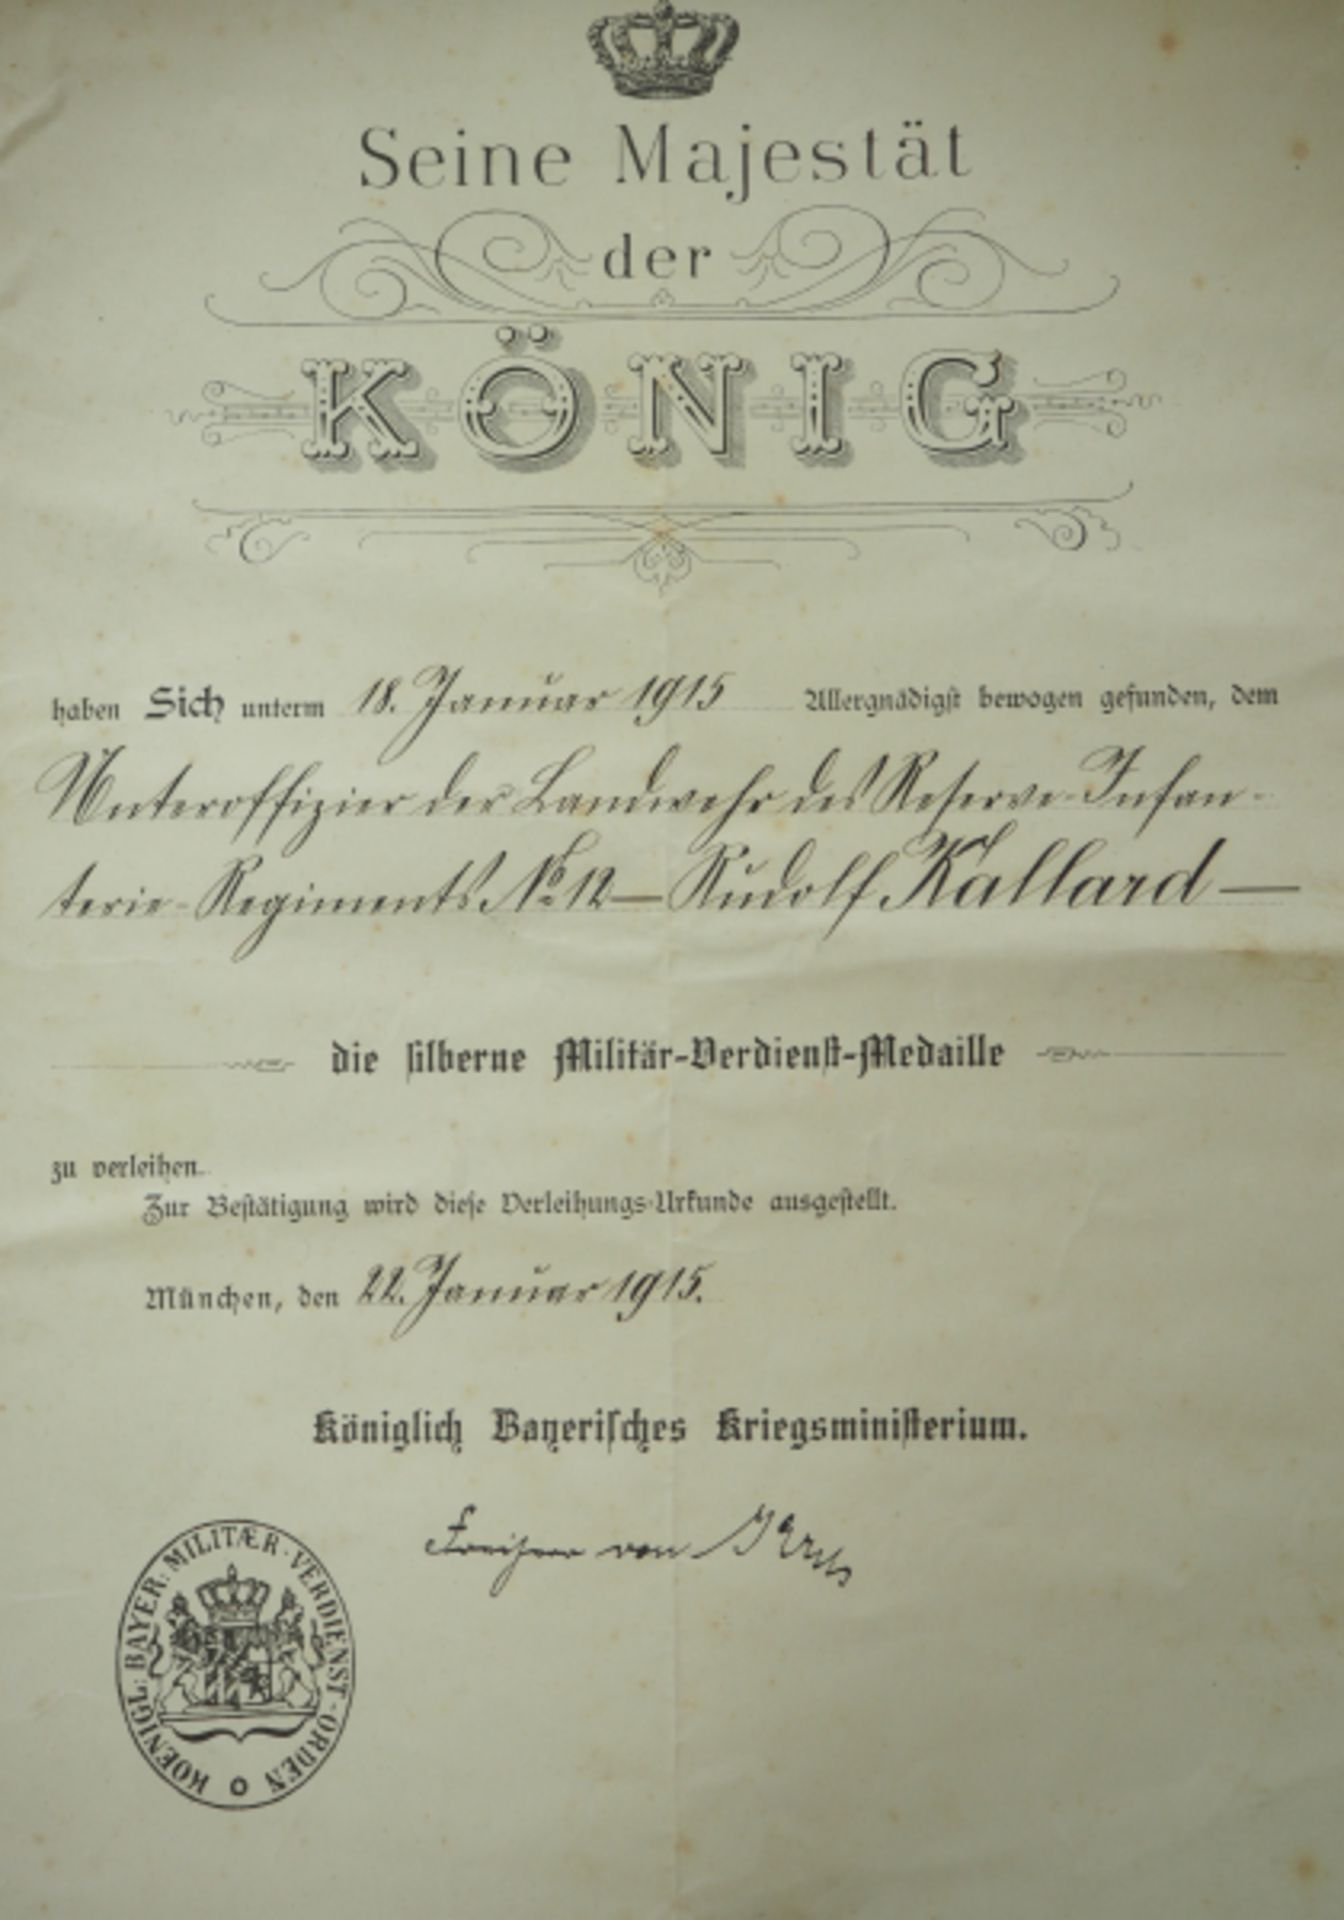 Seine Majestät
der
KÖNIG
haben Sich unterm 18. Januar 1915 Allergnädigst bewogen gefunden, dem
Unteroffizier der Landwehr des Reserve-Infan-
terie-Regiments No 12 — Rudolf Kallard —
die silberne Militär-Verdienst-Medaille
zu verleihen.
Zur Bestätigung wird diese Verleihungs-Urkunde ausgestellt.
München, den 22. Januar 1915.
Königlich Bayerisches Kriegsministerium.
Freiherr von
KOENIGL: BAYER: MILITÆR-VERDIENST-ORDEN